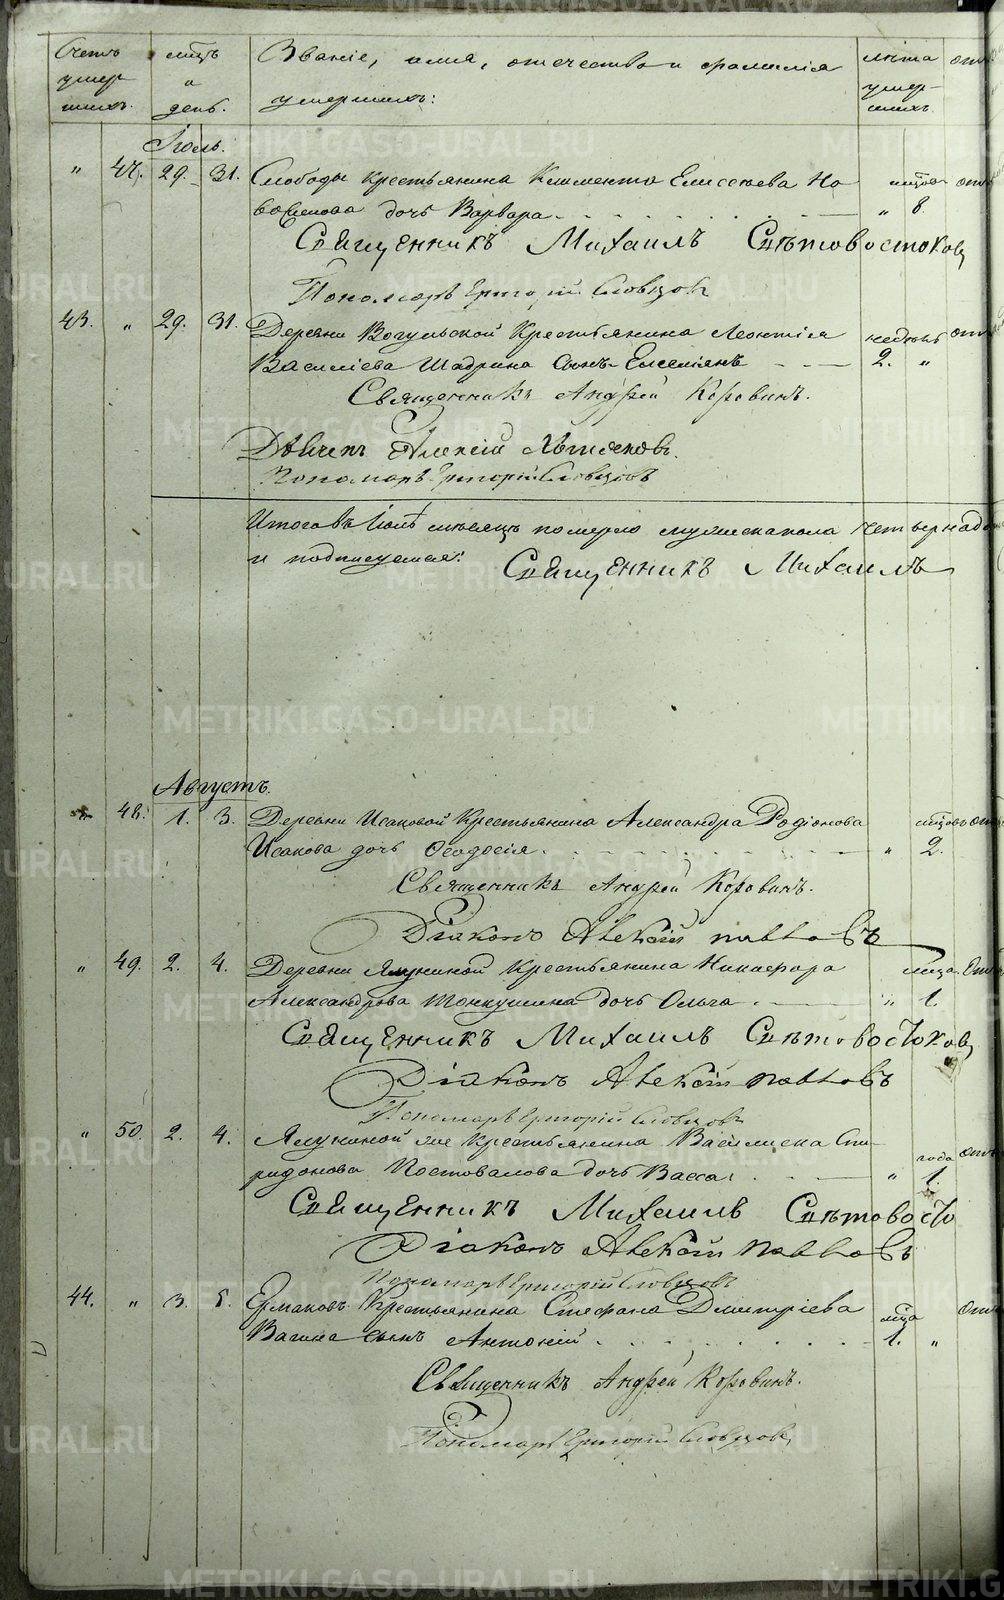 Счетъ умер шихъ.
мц̃ъ и день.
Званіе, имя, отчество и фамилія
умершихъ:
лѣта умер- шихъ
Іюль.
" 47. 29. 31. Слободы крестьянина Климента Елисеева Но
восилова дочь Варвара " 8.
Священникъ Михаилъ Свѣтовостоковъ
Пономарь Григорій Словцовъ
43. " 29. 31. Деревни Вогульской Крестьянина Леонтія недѣль
Василіева Шадрина сынъ Емеліянъ 2. "
Священникъ Андрей Коровинъ.
Діаконъ Алексій
Пономарь Григорій Словцовъ
Итого въ Іюлѣ мѣсяцѣ померло мужеска пола четырнад
и подписуемся: Священникъ Михаилъ
Августъ.
" 48. 1. 3. Деревни Исаковой Крестьянина Александра Родіонова
Исакова дочь Ѳеодосія " 2.
Священникъ Андрей Коровинъ.
Діаконъ Алексій Павловъ
" 49. 2. 4. Деревни Ялуниной Крестьянина Никифора
Александрова дочь Ольга " 1.
Священникъ Михаилъ Свѣтовостоковъ
Діаконъ Алексій Павловъ
Пономарь Григорій Словцовъ
" 50. 2. 4. Ялуниной же Крестьянина Василиска Спи- года
ридонова Постовалова дочь Васса " 1.
Священникъ Михаилъ Свѣтовосто
Діаконъ Алексій Павловъ
Пономарь Григорій Словцовъ
44. " 3. 5. Крестьянина Стефана Димитріева
сынъ Антоній 1. "
Священникъ Андрей Коровинъ.
Пономарь Григорій Словцовъ
METRIKI.GASO-URAL.RU